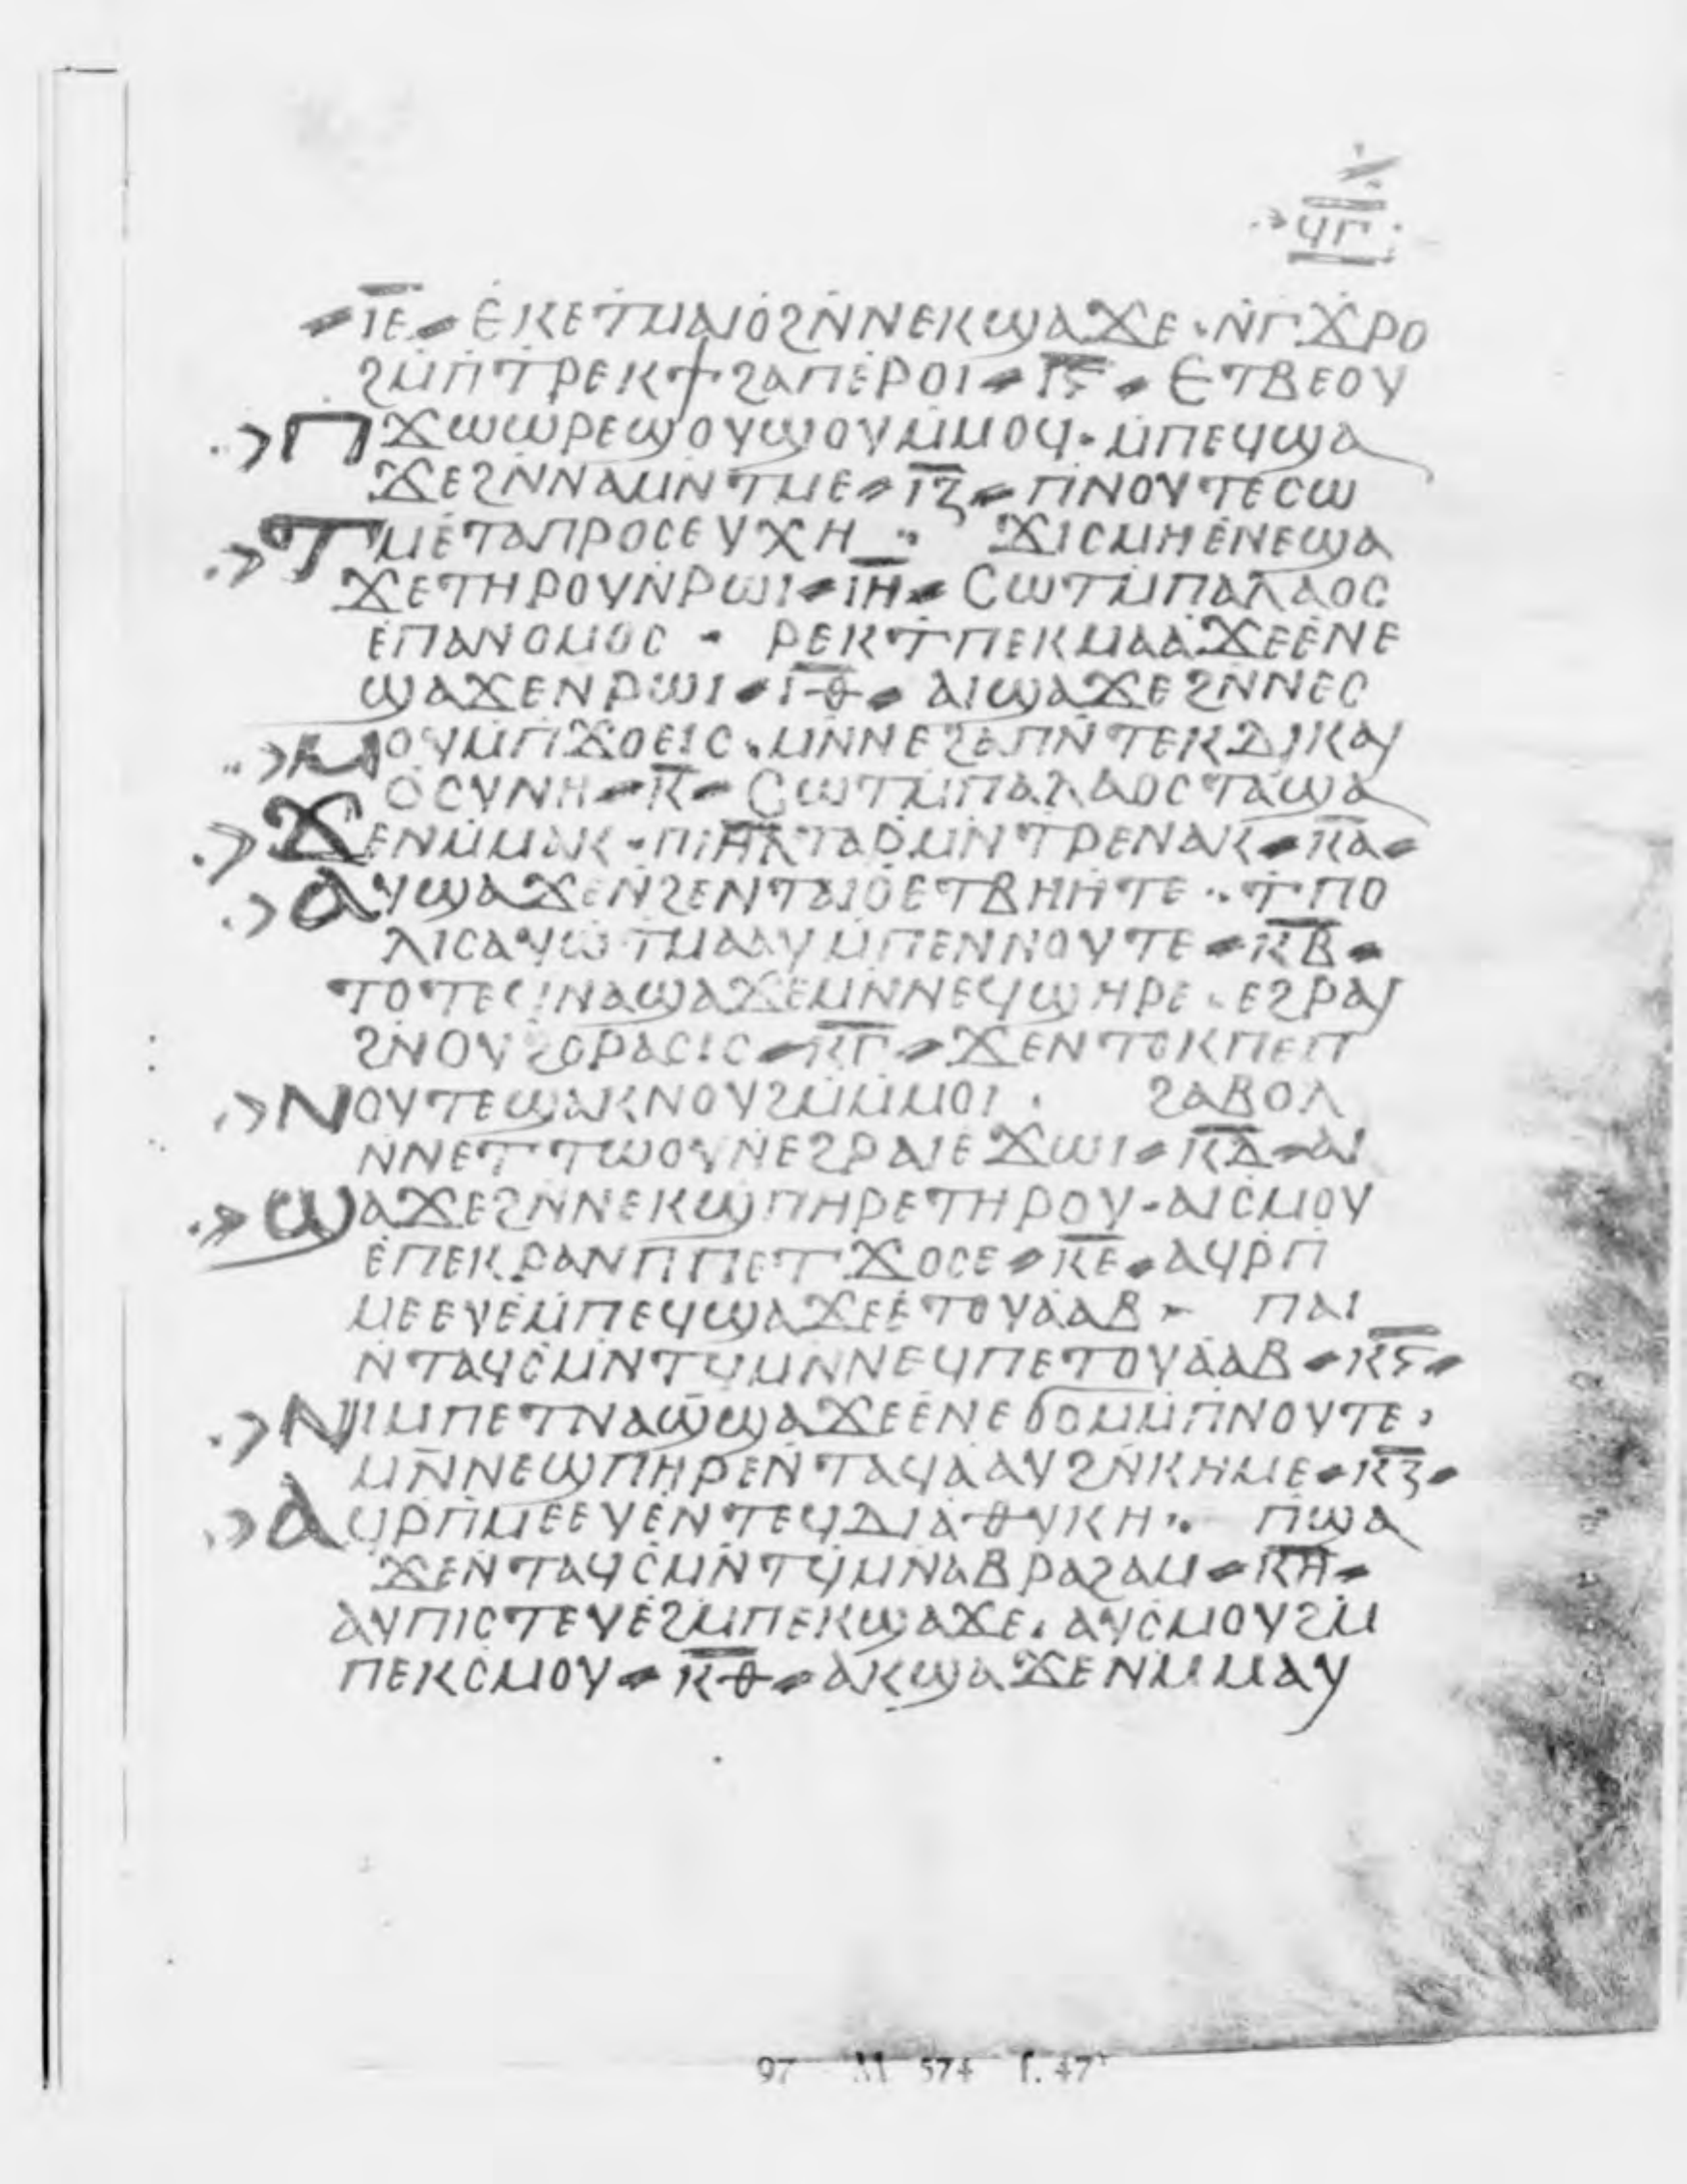 ϥⲅ
ⲓⲉ ⲉⲕⲉⲧⲙⲁⲓⲟϩⲛⲛⲉⲕϣⲁϫⲉ · ⲛⲅϫⲣⲟ
ϩⲙⲡⲧⲣⲉⲕϯϩⲁⲡⲉⲣⲟⲓ ⲓⲋ ⲉⲧⲃⲉⲟⲩ
ⲡϫⲱⲱⲣⲉϣⲟⲩϣⲟⲩⲙⲙⲟϥ · ⲙⲡⲉϥϣⲁ
ϫⲉϩⲛⲛⲁⲙⲛⲧⲙⲉ ⲓⲍ ⲡⲛⲟⲩⲧⲉⲥⲱ
ⲧⲙⲉⲧⲁⲡⲣⲟⲥⲉⲩⲭⲏ ϫⲓⲥⲙⲏⲉⲛⲉϣⲁ
ϫⲉⲧⲏⲣⲟⲩⲛⲣⲱⲓ ⲓⲏ ⲥⲱⲧⲙⲡⲁⲗⲁⲟⲥ
ⲉⲡⲁⲛⲟⲙⲟⲥ · ⲣⲉⲕⲧⲡⲉⲕⲙⲁⲁϫⲉⲉⲛⲉ
ϣⲁϫⲉⲛⲣⲱⲓ ⲓⲑ ⲁⲓϣⲁϫⲉϩⲛⲛⲉⲥ
ⲙⲟⲩⲙⲡϫⲟⲉⲓⲥ · ⲙⲛⲛⲉϩⲉⲡⲛⲧⲉⲕⲇⲓⲕⲁⲓ
ⲟⲥⲩⲛⲏ ⲕ ⲥⲱⲧⲙⲡⲁⲗⲁⲟⲥⲧⲁϣⲁ
ϫⲉⲛⲙⲙⲁⲕ · ⲡⲓⲏⲗⲧⲁⲣⲙⲛⲧⲣⲉⲛⲁⲕ ⲕⲁ
ⲁⲩϣⲁϫⲉⲛϩⲉⲛⲧⲁⲓⲟⲉⲧⲃⲏⲏⲧⲉ · ⲧⲡⲟ
ⲗⲓⲥⲁⲩⲱⲧⲙⲁⲁⲩⲙⲡⲉⲛⲛⲟⲩⲧⲉ ⲕⲃ
ⲧⲟⲧⲉⲥⲓⲛⲁϣⲁϫⲉⲙⲛⲛⲉϥϣⲏⲣⲉ · ⲉϩⲣⲁⲓ
ϩⲛⲟⲩϩⲟⲣⲁⲥⲓⲥ ⲕⲅ ϫⲉⲛⲧⲟⲕⲡⲉⲡ
ⲛⲟⲩⲧⲉϣⲁⲕⲛⲟⲩϩⲙⲙⲙⲟⲓ · ϩⲁⲃⲟⲗ
ⲛⲛⲉⲧⲧⲱⲟⲩⲛⲉϩⲣⲁⲓⲉϫⲱⲓ ⲕⲇ ⲁⲓ
ϣⲁϫⲉϩⲛⲛⲉⲕϣⲡⲏⲣⲉⲧⲏⲣⲟⲩ · ⲁⲓⲥⲙⲟⲩ
ⲉⲡⲉⲕⲣⲁⲛⲡⲡⲉⲧϫⲟⲥⲉ ⲕⲉ ⲁϥⲣⲡ
ⲙⲉⲉⲩⲉⲙⲡⲉϥϣⲁϫⲉⲉⲧⲟⲩⲁⲁⲃ · ⲡⲁⲓ
ⲛⲧⲁϥⲥⲙⲛⲧϥⲙⲛⲛⲉϥⲡⲉⲧⲟⲩⲁⲁⲃ ⲕⲋ
ⲛⲓⲙⲡⲉⲧⲛⲁϣϣⲁϫⲉⲉⲛⲉϭⲟⲙⲙⲡⲛⲟⲩⲧⲉ ·
ⲙⲛⲛⲉϣⲡⲏⲣⲉⲛⲧⲁϥⲁⲁⲩϩⲛⲕⲏⲙⲉ ⲕⲍ
ⲁϥⲣⲡⲙⲉⲉⲩⲉⲛⲧⲉϥⲇⲓⲁⲑⲩⲕⲏ · ⲡϣⲁ
ϫⲉⲛⲧⲁϥⲥⲙⲛⲧϥⲙⲛⲁⲃⲣⲁϩⲁⲙ ⲕⲏ
ⲁⲩⲡⲓⲥⲧⲉⲩⲉϩⲙⲡⲉⲕϣⲁϫⲉ · ⲁⲩⲥⲙⲟⲩϩⲙ
ⲡⲉⲕⲥⲙⲟⲩ ⲕⲑ ⲁⲕϣⲁϫⲉⲛⲙⲙⲁⲩ
97 M 574 f. 47ʳ